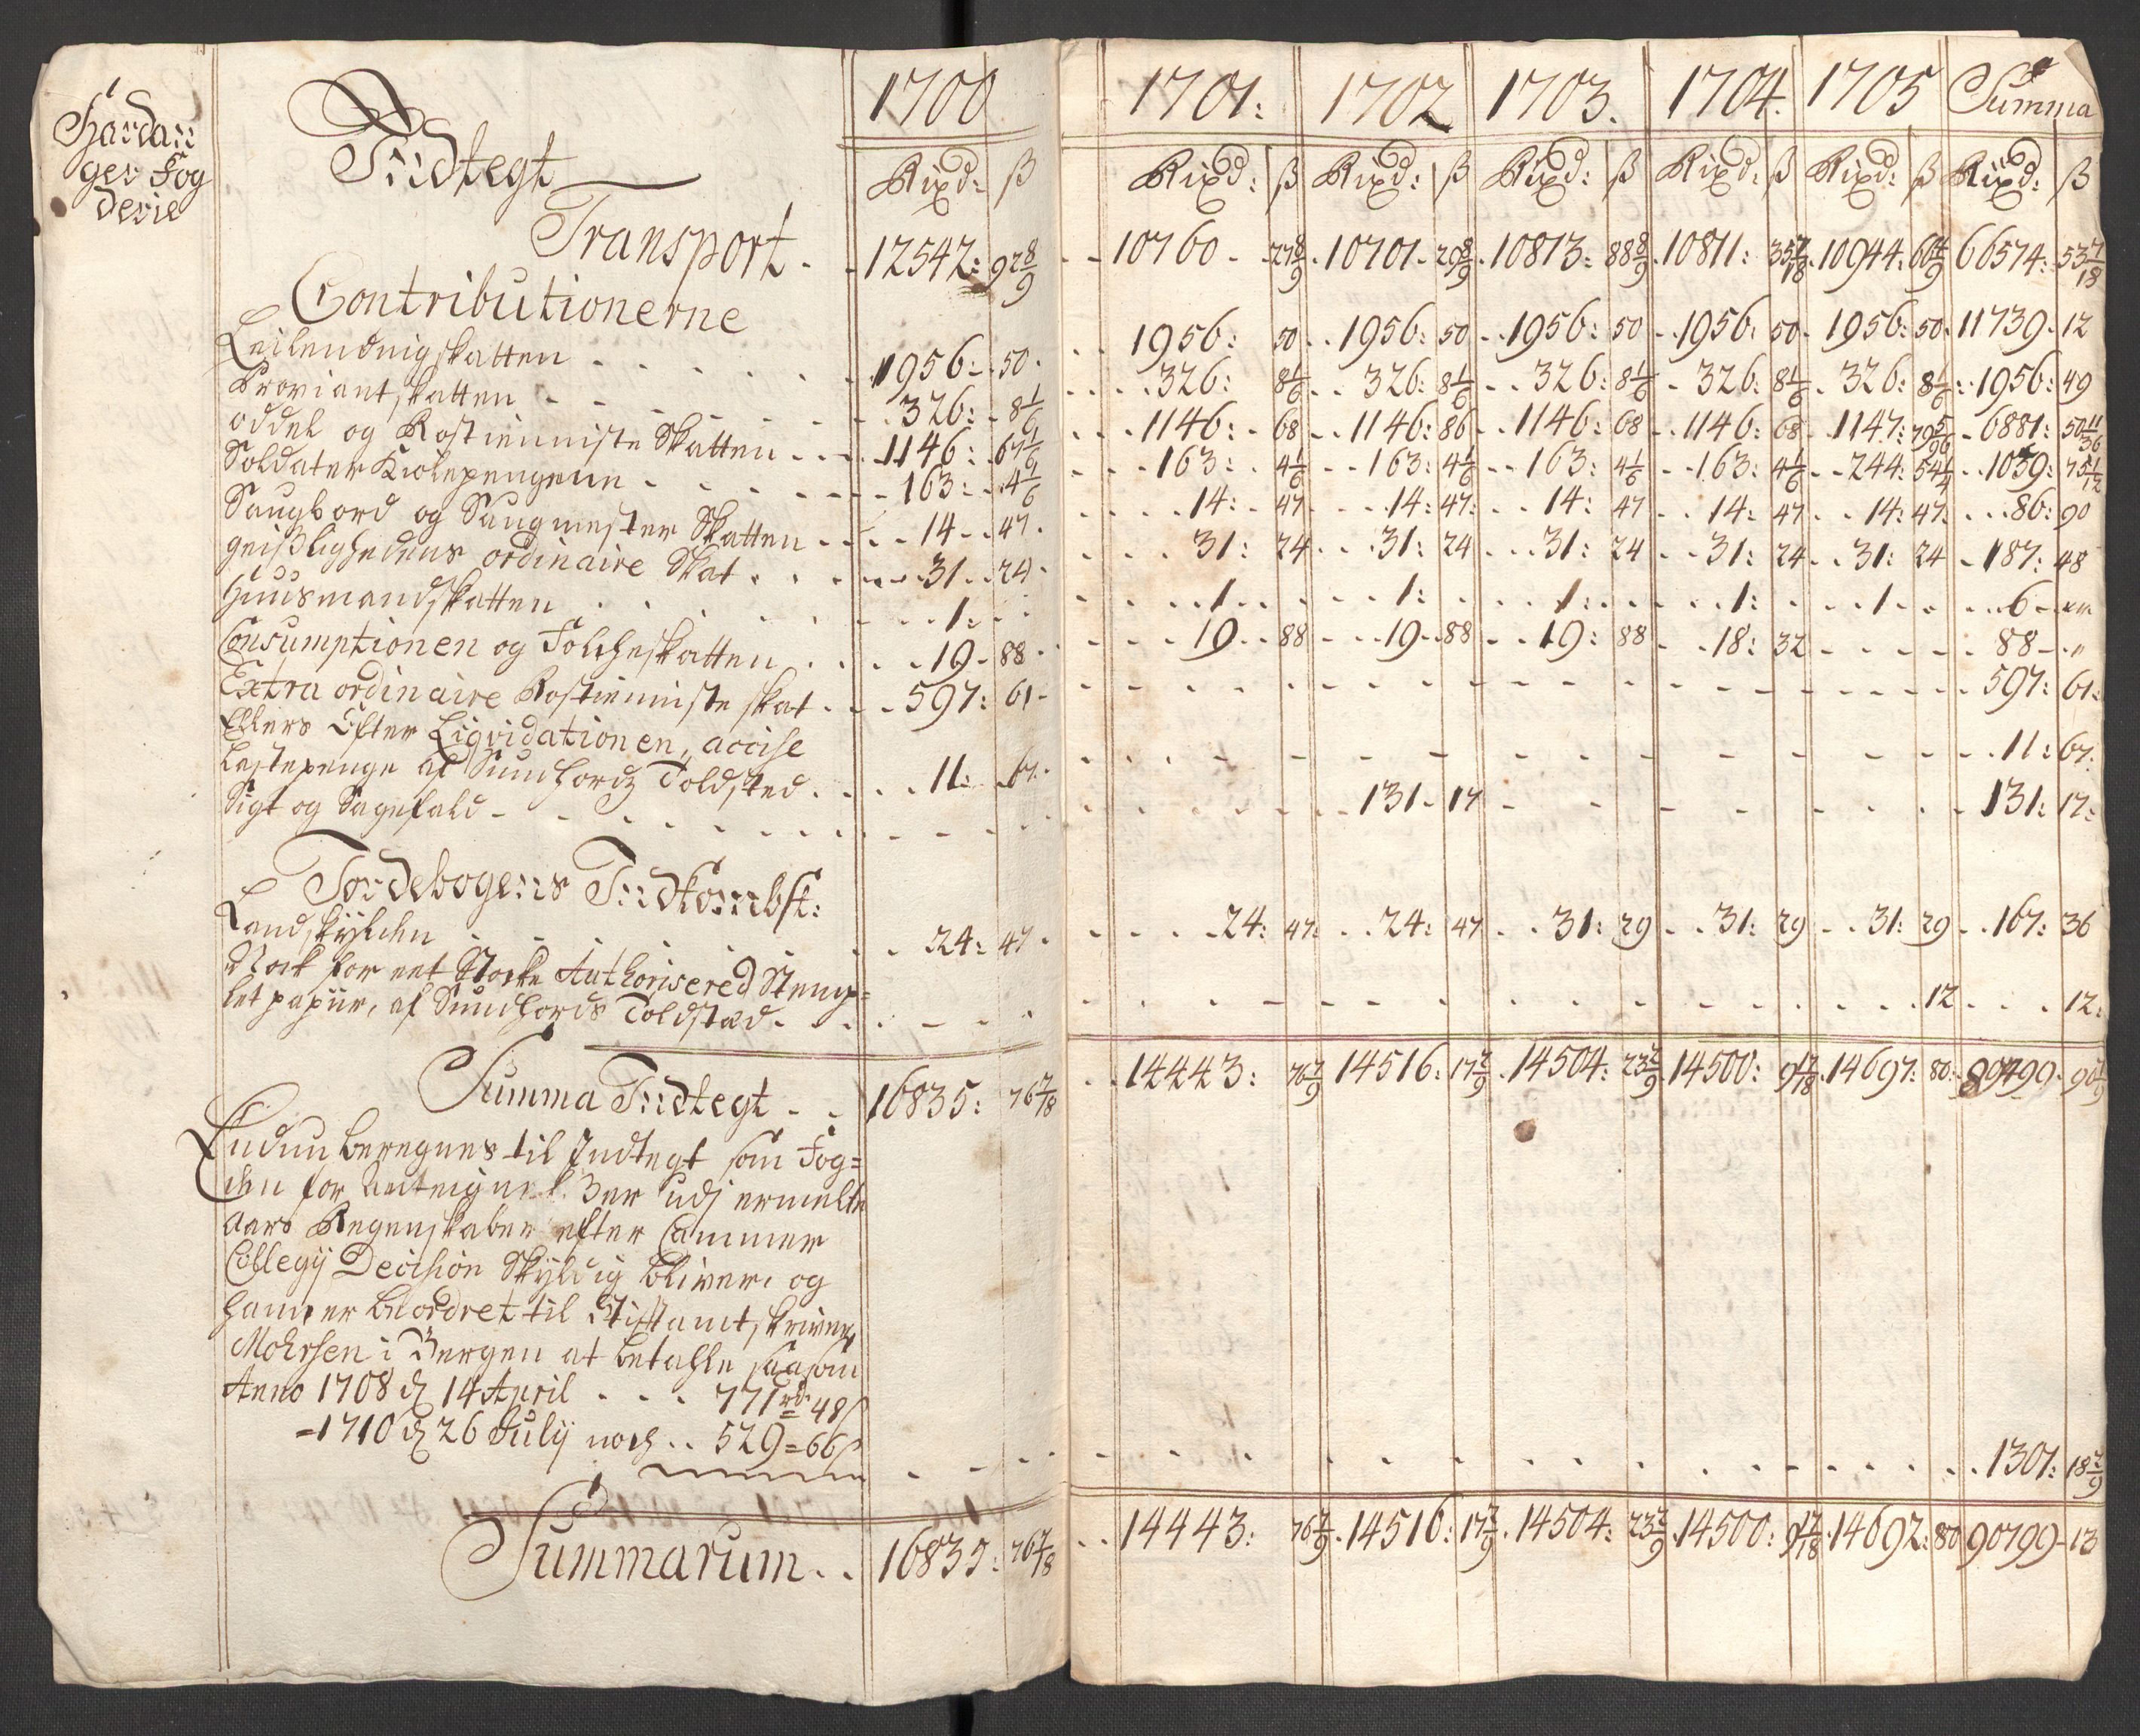 Hardan:
ger Fog
derie
Indtegt
1700 1701: 1702 1703. 1704. 1705 Summa
Rixd: ß Rixd: ß Rixd: ß Rixd: ß Rixd: ß Rixd: ß Rixd: ß
Transport . . 12542: 92 8/9 10760 27 8/9 10701 29 8/9 10813: 88 8/9 10811: 35 7/18 10944: 60 4/9 66574: 53 7/18
Contributionerne
Leilendingskatten 1956 50 1956: 50 1956: 50 1956: 50 1956: 50 1956: 50 11739 12
Proviantskatten 326: 8 1/6 326: 8 1/6 326: 8 1/6 326: 8 1/6 326: 8 1/6 326: 8 1/6 1956: 49
oddel og Rostienniste Skatten 1146: 67 1/9 1146: 68 1146: 86 1146: 68 1146: 68 1147: 79 5/96 6881: 50 11/36
Soldater Kiolepengene 163: 4 1/6 163: 4 1/6 163: 4 1/6 163: 4 1/6 163: 4 1/6 244: 54 1/4 1059: 75 1/12
Saugbord og Saugmester Skatten 14 47 14: 47 14: 47: 14: 47 14: 47 14: 47: 86: 90
geistlighedens ordinaire Skat 31 24 31: 24 31: 24 31: 24 31: 24 31: 24 187: 48
Huusmandskatten 1: 1 1: 1: 1: 1 6
Consumptionen og Folcheskatten 19 88 19 88 19 88 19: 88 18: 32 88
Extra ordinaire Rostienniste skat 597: 61 597: 61:
Ellers Efter Liqvidationen, accise
Lastepenge af Sundhordz Toldsted 11: 67 11: 67:
Sigt og Sagefald 131 17 131: 17:
Jordebogens Indkombst:
Landskylden 24: 47 24: 47: 24: 47 31: 29 31: 29 31: 29 167: 36
Nock for eet Støcke Authorisered Stemp=
let papiir, af Sundhords Toldsted 12 12:
Summa Indtegt 16835: 76 7/18 14443: 76 7/9 14516: 17 2/9 14504: 23 2/9 14500: 9 17/18 14697: 80: 89499 90 1/9
Endnu beregnes til Indtegt som Fog=
den for Anteignet. 3er udj ermelte
Aars Regenskaber efter Cammer
Collegij Decision Skyldig bliver, og
hand er beordret til Stiftamtskriver
Mohrsen i Bergen at betahle saasom
Anno 1708 d 14 April 771 rd 48 ß
=1710 d 26 Julij noch 529 = 66 ß
1301: 18 2/9
Summarum 16835: 76 7/18 14443: 76 7/9 14516: 17 2/9 14504: 23 2/9 14500: 9 17/18 14692: 80 90799 13